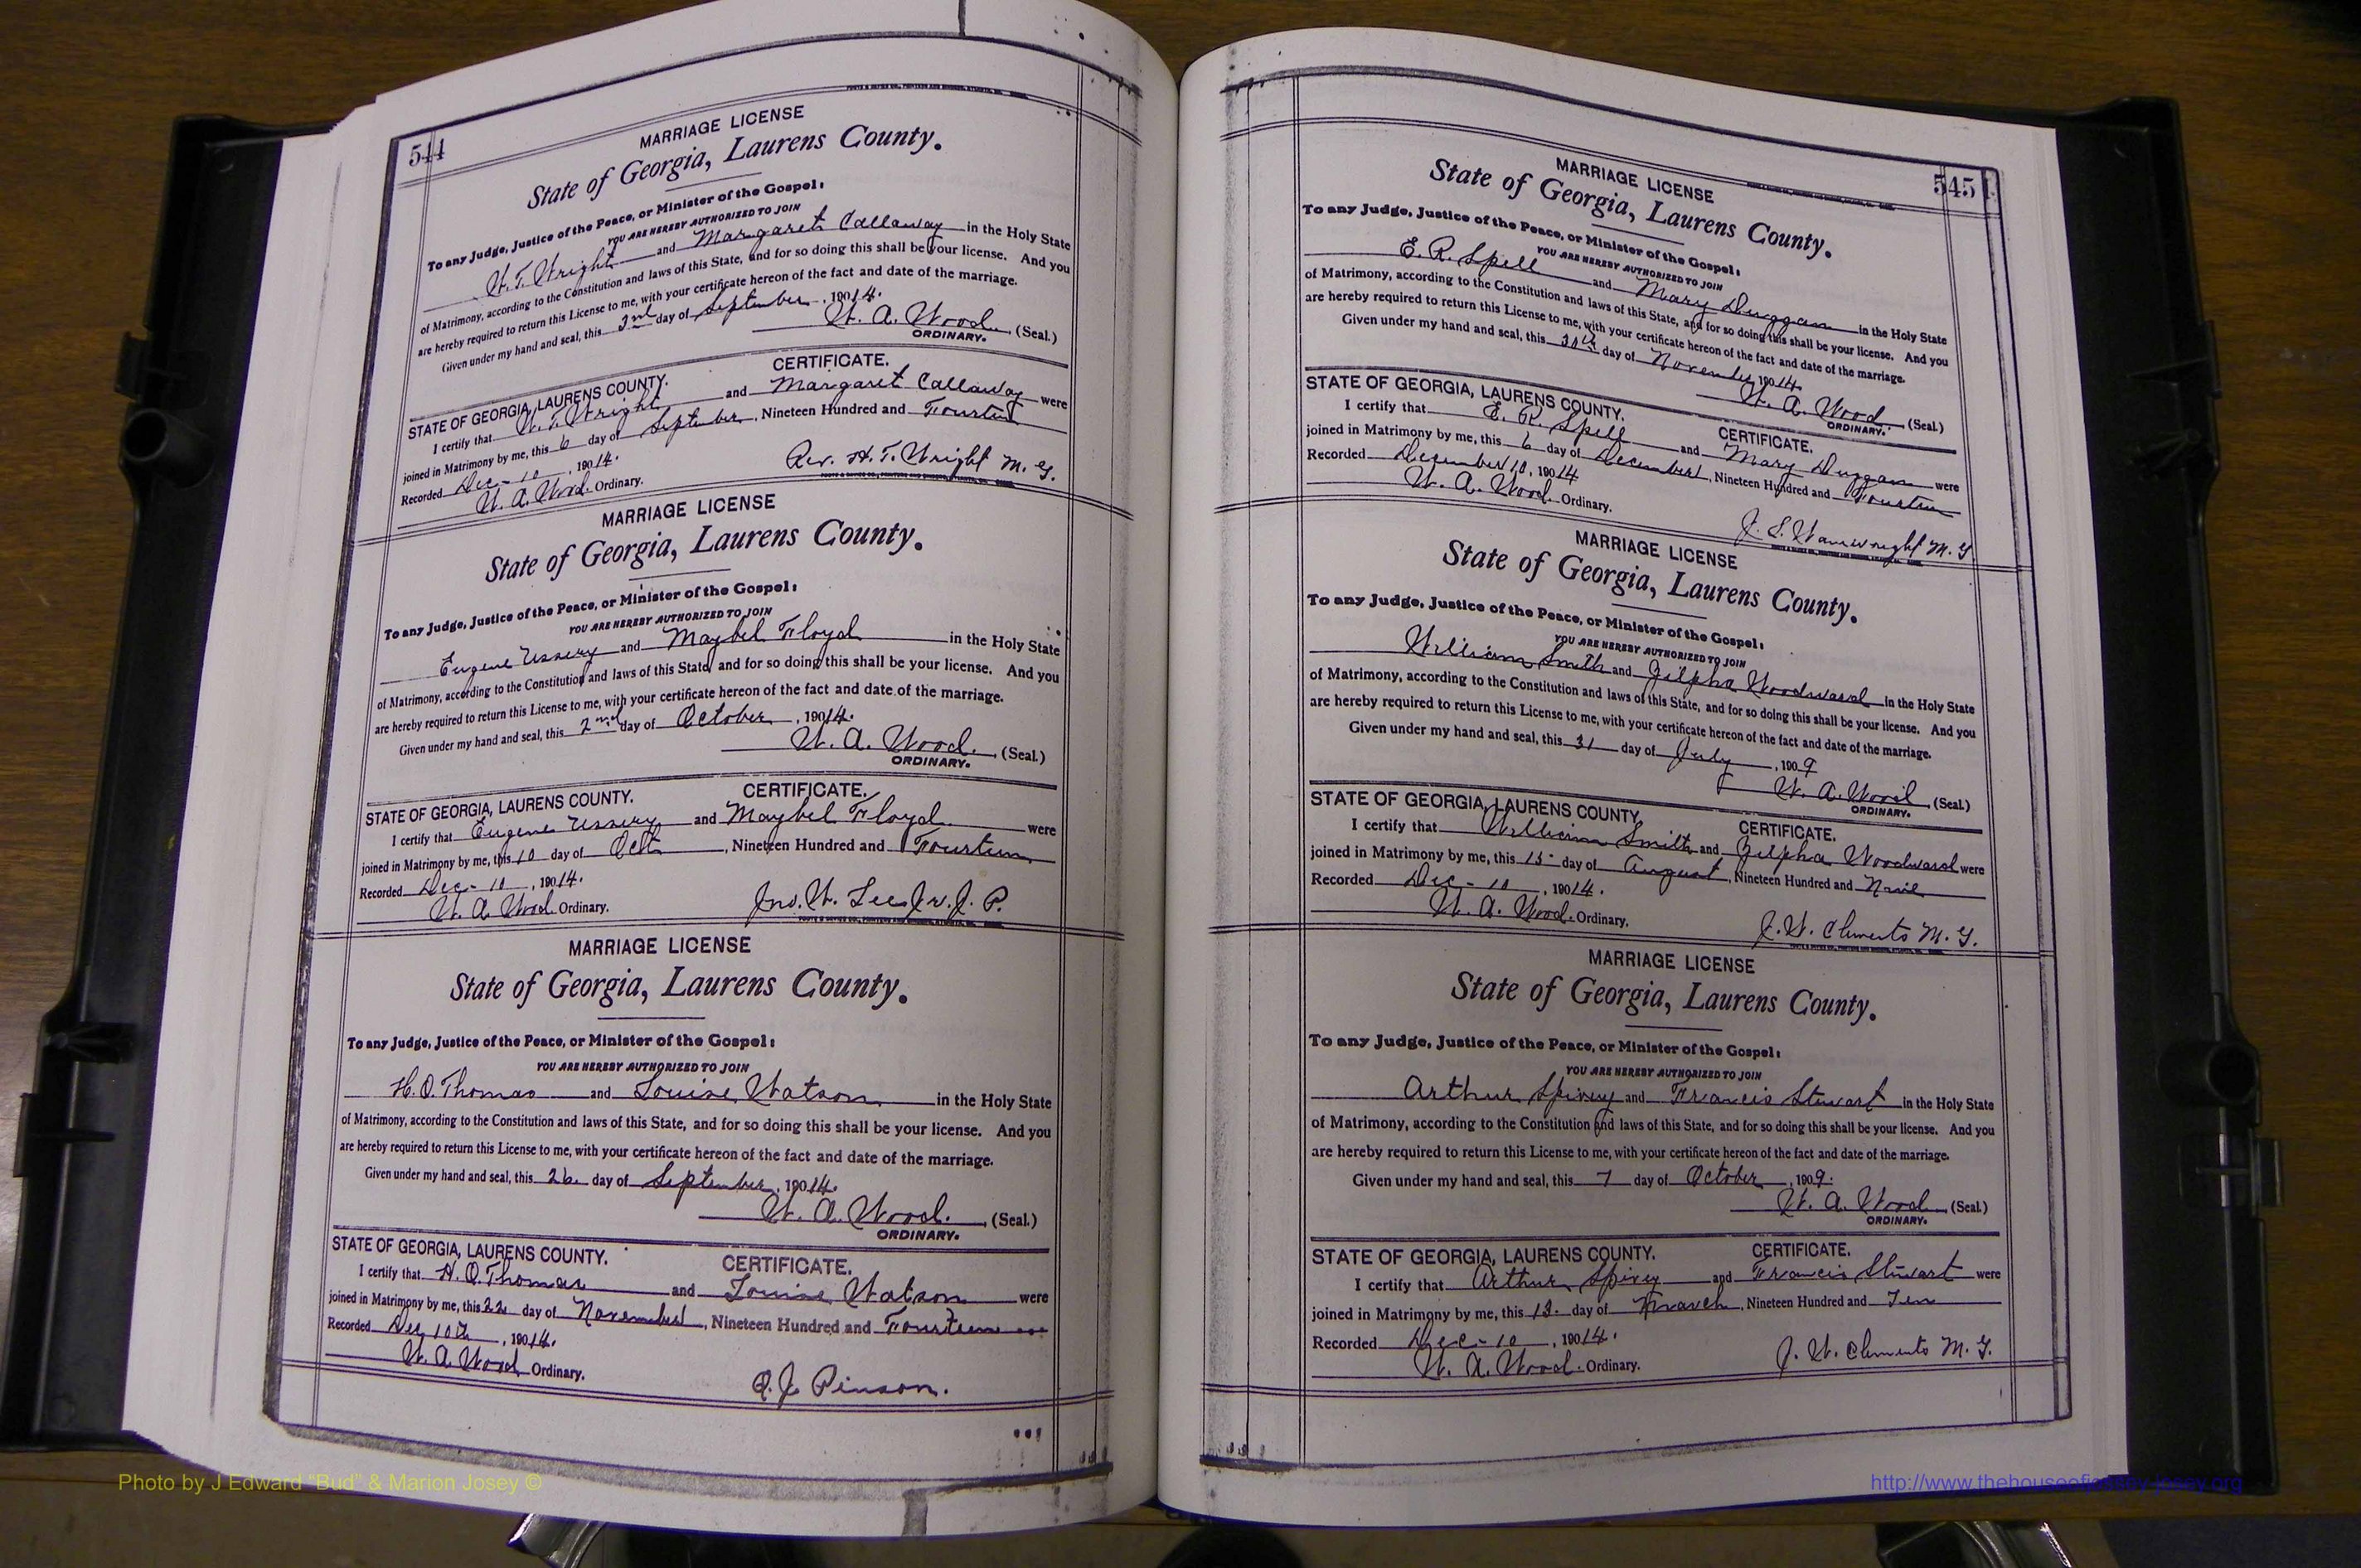 544
MARRIAGE LICENSE
State of Georgia, Laurens County.
To any Judge, Justice of the Peace, or Minister of the Gospel:
YOU ARE HEREBY AUTHORIZED TO JOIN
W. T. Wright and Margaret Callaway in the Holy State
of Matrimony, according to the Constitution and laws of this State, and for so doing this shall be your license. And you
are hereby required to return this License to me, with your certificate hereon of the fact and date of the marriage.
Given under my hand and seal, this 3rd day of September, 19014.
W. A. Wood (Seal.)
ORDINARY.
CERTIFICATE.
STATE OF GEORGIA, LAURENS COUNTY.
I certify that W. T. Wright and Margaret Callaway were
joined in Matrimony by me, this 6 day of September, Nineteen Hundred and Fourteen
Recorded Dec - 10, 19014.
Rev. H. T. Wright M. G.
W. A. Wood Ordinary.
MARRIAGE LICENSE
State of Georgia, Laurens County.
To any Judge, Justice of the Peace, or Minister of the Gospel:
YOU ARE HEREBY AUTHORIZED TO JOIN
Eugene Ussery and Maybel Floyd in the Holy State
of Matrimony, according to the Constitution and laws of this State, and for so doing this shall be your license. And you
are hereby required to return this License to me, with your certificate hereon of the fact and date of the marriage.
Given under my hand and seal, this 2nd day of October, 19014.
W. A. Wood. (Seal.)
ORDINARY.
CERTIFICATE.
STATE OF GEORGIA, LAURENS COUNTY.
I certify that Eugene Ussery and Maybel Floyd were
joined in Matrimony by me, this 10 day of Oct, Nineteen Hundred and Fourteen
Recorded Dec - 10, 19014.
W. A. Wood Ordinary.
Jno. W. Lee Jr. J. P.
MARRIAGE LICENSE
State of Georgia, Laurens County.
To any Judge, Justice of the Peace, or Minister of the Gospel:
YOU ARE HEREBY AUTHORIZED TO JOIN
H. O. Thomas and Louise Watson in the Holy State
of Matrimony, according to the Constitution and laws of this State, and for so doing this shall be your license. And you
are hereby required to return this License to me, with your certificate hereon of the fact and date of the marriage.
Given under my hand and seal, this 26 day of September, 19014.
W. A. Wood. (Seal.)
ORDINARY.
STATE OF GEORGIA, LAURENS COUNTY. CERTIFICATE.
I certify that H. O. Thomas and Louise Watson were
joined in Matrimony by me, this 22 day of November, Nineteen Hundred and Fourteen
Recorded Dec 10th, 19014.
W. A. Wood Ordinary.
Q. J. Pinson.
545
MARRIAGE LICENSE
State of Georgia, Laurens County.
To any Judge, Justice of the Peace, or Minister of the Gospel:
YOU ARE HEREBY AUTHORIZED TO JOIN
E. R. Spell and Mary Duggan in the Holy State
of Matrimony, according to the Constitution and laws of this State, and for so doing this shall be your license. And you
are hereby required to return this License to me, with your certificate hereon of the fact and date of the marriage.
Given under my hand and seal, this 30th day of November 19014.
W. A. Wood (Seal.)
ORDINARY.
STATE OF GEORGIA, LAURENS COUNTY. CERTIFICATE.
I certify that E. R. Spell and Mary Duggan were
joined in Matrimony by me, this 6 day of December, Nineteen Hundred and Fourteen
Recorded December 10, 19014
W. A. Wood. Ordinary.
J. S. Wainwright M. G
MARRIAGE LICENSE
State of Georgia, Laurens County.
To any Judge, Justice of the Peace, or Minister of the Gospel:
YOU ARE HEREBY AUTHORIZED TO JOIN
William Smith and Zilpha Woodward in the Holy State
of Matrimony, according to the Constitution and laws of this State, and for so doing this shall be your license. And you
are hereby required to return this License to me, with your certificate hereon of the fact and date of the marriage.
Given under my hand and seal, this 31 day of July, 1909
W. A. Wood (Seal.)
ORDINARY.
STATE OF GEORGIA, LAURENS COUNTY. CERTIFICATE.
I certify that William Smith and Zilpha Woodward were
joined in Matrimony by me, this 15 day of August, Nineteen Hundred and Nine
Recorded Dec - 10, 19014.
W. A. Wood. Ordinary.
J. W. Clements M. G.
MARRIAGE LICENSE
State of Georgia, Laurens County.
To any Judge, Justice of the Peace, or Minister of the Gospel:
YOU ARE HEREBY AUTHORIZED TO JOIN
Arthur Spivey and Francis Stewart in the Holy State
of Matrimony, according to the Constitution and laws of this State, and for so doing this shall be your license. And you
are hereby required to return this License to me, with your certificate hereon of the fact and date of the marriage.
Given under my hand and seal, this 7 day of October, 1909.
W. A. Wood (Seal.)
ORDINARY.
STATE OF GEORGIA, LAURENS COUNTY. CERTIFICATE.
I certify that Arthur Spivey and Francis Stewart were
joined in Matrimony by me, this 13. day of March, Nineteen Hundred and Ten
Recorded Dec - 10, 19014.
W. A. Wood. Ordinary.
J. W. Clements M. G.
Photo by J Edward "Bud" & Marion Josey ©